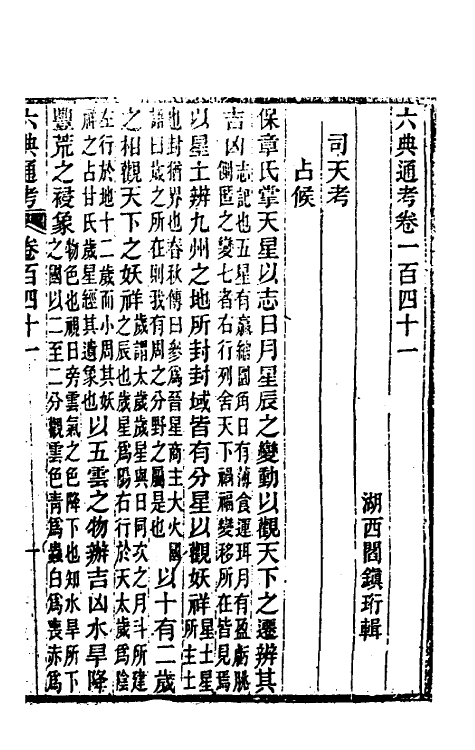 六典通考卷一百四十一
湖西閻鎮珩輯
司天考
占候
保章氏掌天星以志日月星辰之變動以觀天下之遷辨其
吉凶志記也五星有贏縮圜角日有薄食運珥月有盈虧朓側匿之變七者右行列舍天下禍福變移所在皆見焉
以星土辨九州之地所封封域皆有分星以觀妖祥星土星所主土
也封猶界也春秋傳曰參爲晉星商主大火國語曰歲之所在則我有周之分野之屬是也以十有二歲
之相觀天下之妖祥歲謂太歲歲星與日同次之月斗所建之辰也歲星爲陽右行於天太歲爲陰
左行於地十二歲而小周其妖祥之占甘氏歲星經其遺象也以五雲之物辨吉凶水旱降
豐荒之祲象物色也視日旁雲氣之色降下也知水旱所下之國以二至二分觀雲色青爲蟲白爲喪赤爲
六典通考 卷百四十一 一